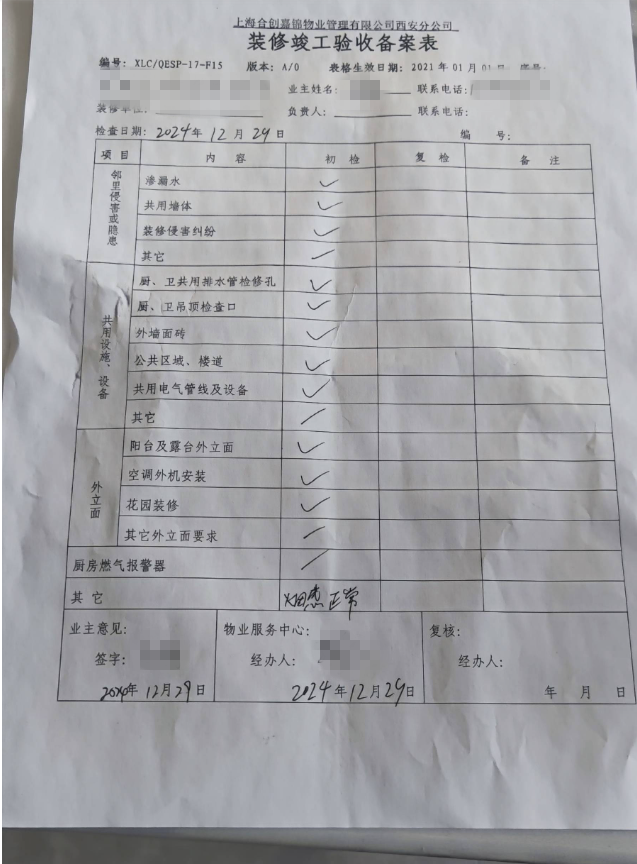 上海合创嘉锦物业管理有限公司西安分公司
装修竣工验收备案表
编号: XLC/QESP-17-F15 版本: A/0 表格生效日期: 2021年01月01日 序号:
业主姓名: 联系电话:
装修单位: 负责人: 联系电话:
检查日期: 2024年12月29日 编 号:
项目 内 容 初 检 复 检 备 注
邻里侵害或隐患
渗漏水 ✓
共用墙体 ✓
装修侵害纠纷 ✓
其它 /
共用设施、设备
厨、卫共用排水管检修孔 ✓
厨、卫吊顶检查口 ✓
外墙面砖 ✓
公共区域、楼道 ✓
共用电气管线及设备 ✓
其它 /
外立面
阳台及露台外立面 ✓
空调外机安装 ✓
花园装修 ✓
其它外立面要求 /
厨房燃气报警器 /
其 它 烟感正常
业主意见: 物业服务中心: 复核:
签字: 经办人: 经办人:
2024年12月29日 2024年12月29日 年 月 日